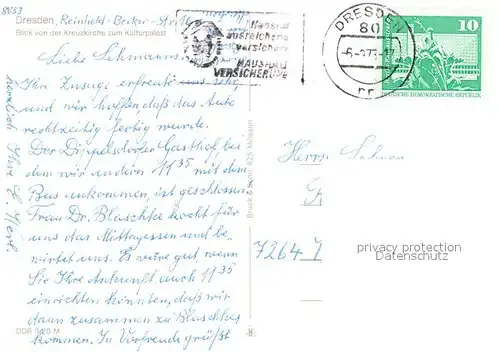 8053
Dresden, Reinhold-Becker-Str.
Blick von der Kreuzkirche zum Kulturpalast
Liebe Lehmanns,
Ihr Zusage erfreute uns sehr,
und wir hoffen, daß das Auto
rechtzeitig fertig wurde.
Der Dippelsdorfer Gasthof, bei
dem wir andern 11 35 mit dem
Bus ankommen, ist geschlossen.
Frau Dr. Blaschke kocht für
uns das Mittagessen und be-
wirtet uns. Es wäre gut, wenn
Sie Ihre Ankunft auch 11 35
einrichten könnten, daß wir
dann zusammen zu Blaschkes
kommen. In Vorfreude grüßt
herzlich Ihre
DDR 0,20 M
Hausrat
ausreichend
versichern
HAUSHALT
VERSICHERUNG
DRESDEN
80
10
DEUTSCHE DEMOKRATISCHE REPUBLIK
Bruck & Sohn 825 Meissen
Herrn
7264
privacy protection
Datenschutz